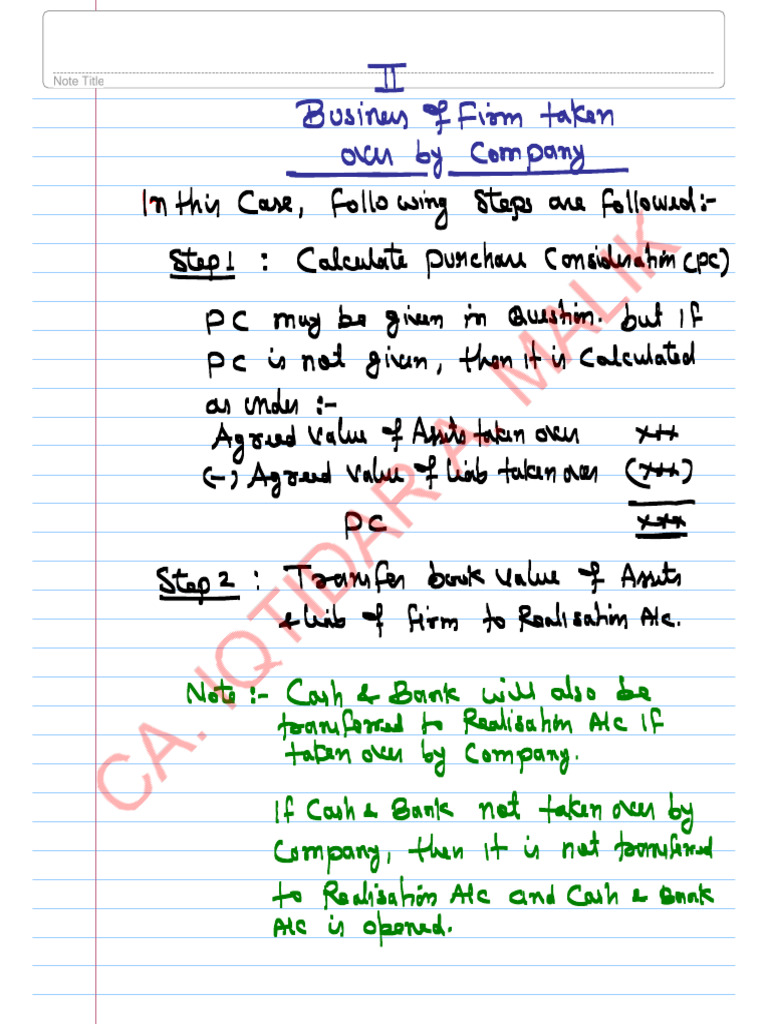 Note Title
II
Business of Firm taken
over by Company
In this Case, following steps are followed:-
Step 1 : Calculate Purchase Consideration (PC)
PC may be given in Question. but if
PC is not given, then it is Calculated
as under :-
Agreed Value of Assets taken over xxx
(-) Agreed Value of liab taken over (xxx)
PC xxx
Step 2 : Transfer book value of Assets
& liab of firm to Realisation A/c.
Note :- Cash & Bank will also be
transferred to Realisation A/c if
taken over by Company.
If Cash & Bank not taken over by
Company, then it is not transferred
to Realisation A/c and Cash & Bank
A/c is opened.
CA. IQTIDAR A. MALIK